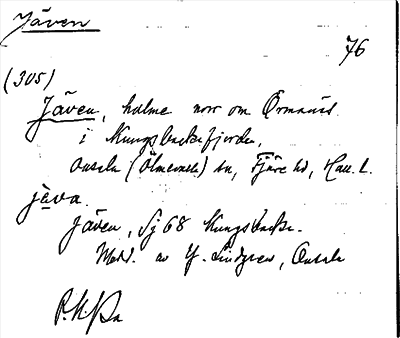 Jäven
76
(305)
Jäven, holme norr om Ormanäs
i Kungsbackafjorden,
Onsala (Ölmevalla) sn, Fjäre hd, Hall. l.
jäva.
Jäven, Sj 68 Kungsbacka.
Medd. av Y. Lindgren, Onsala